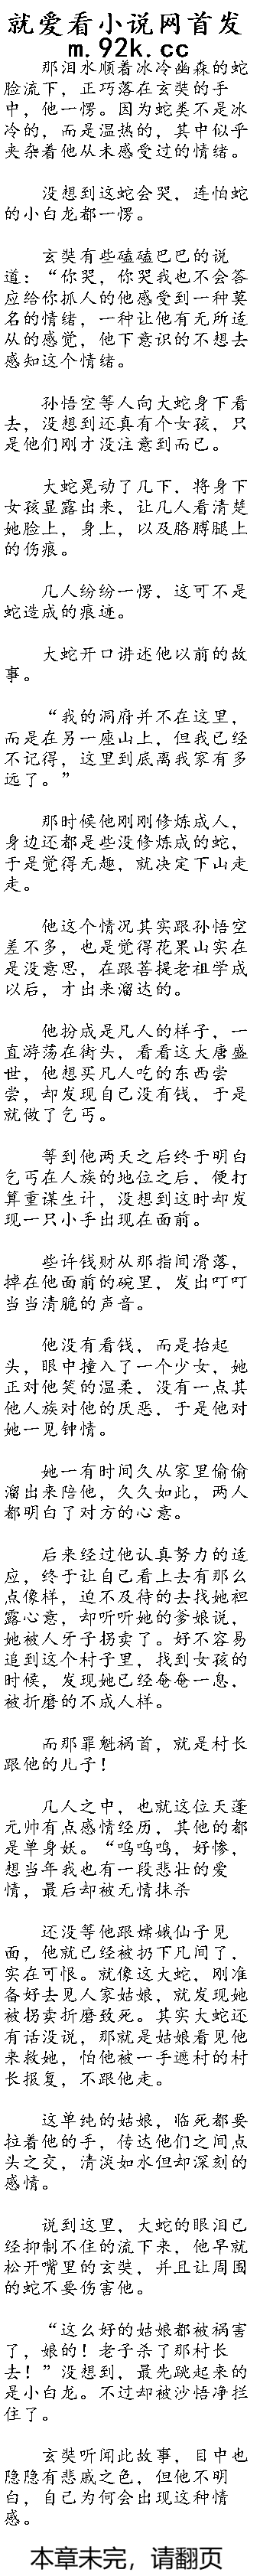 就爱看小说网首发
m.92k.cc
那泪水顺着冰冷幽森的蛇
脸流下，正巧落在玄奘的手
中，他一愣。因为蛇类不是冰
冷的，而是温热的，其中似乎
夹杂着他从未感受过的情绪。
没想到这蛇会哭，连怕蛇
的小白龙都一愣。
玄奘有些磕磕巴巴的说
道：“你哭，你哭我也不会答
应给你抓人的他感受到一种莫
名的情绪，一种让他有无所适
从的感觉，他下意识的不想去
感知这个情绪。
孙悟空等人向大蛇身下看
去，没想到还真有个女孩，只
是他们刚才没注意到而已。
大蛇晃动了几下，将身下
女孩显露出来，让几人看清楚
她脸上，身上，以及胳膊腿上
的伤痕。
几人纷纷一愣，这可不是
蛇造成的痕迹。
大蛇开口讲述他以前的故
事。
“我的洞府并不在这里，
而是在另一座山上，但我已经
不记得，这里到底离我家有多
远了。”
那时候他刚刚修炼成人，
身边还都是些没修炼成的蛇，
于是觉得无趣，就决定下山走
走。
他这个情况其实跟孙悟空
差不多，也是觉得花果山实在
是没意思，在跟菩提老祖学成
以后，才出来溜达的。
他扮成是凡人的样子，一
直游荡在街头，看看这大唐盛
世，他想买凡人吃的东西尝
尝，却发现自己没有钱，于是
就做了乞丐。
等到他两天之后终于明白
乞丐在人族的地位之后，便打
算重谋生计，没想到这时却发
现一只小手出现在面前。
些许钱财从那指间滑落，
掉在他面前的碗里，发出叮叮
当当清脆的声音。
他没有看钱，而是抬起
头，眼中撞入了一个少女，她
正对他笑的温柔，没有一点其
他人族对他的厌恶，于是他对
她一见钟情。
她一有时间久从家里偷偷
溜出来陪他，久久如此，两人
都明白了对方的心意。
后来经过他认真努力的适
应，终于让自己看上去有那么
点像样，迫不及待的去找她袒
露心意，却听听她的爹娘说，
她被人牙子拐卖了。好不容易
追到这个村子里，找到女孩的
时候，发现她已经奄奄一息，
被折磨的不成人样。
而那罪魁祸首，就是村长
跟他的儿子！
几人之中，也就这位天蓬
元帅有点感情经历，其他的都
是单身妖。“呜呜呜，好惨，
想当年我也有一段悲壮的爱
情，最后却被无情抹杀
还没等他跟嫦娥仙子见
面，他就已经被扔下凡间了，
实在可恨。就像这大蛇，刚准
备好去见人家姑娘，就发现她
被拐卖折磨致死。其实大蛇还
有话没说，那就是姑娘看见他
来救她，怕他被一手遮村的村
长报复，不跟他走。
这单纯的姑娘，临死都要
拉着他的手，传达他们之间点
头之交，清淡如水但却深刻的
感情。
说到这里，大蛇的眼泪已
经抑制不住的流下来，他早就
松开嘴里的玄奘，并且让周围
的蛇不要伤害他。
“这么好的姑娘都被祸害
了，娘的！老子杀了那村长
去！”没想到，最先跳起来的
是小白龙。不过却被沙悟净拦
住了。
玄奘听闻此故事，目中也
隐隐有悲戚之色，但他不明
白，自己为何会出现这种情
感。
本章未完，请翻页